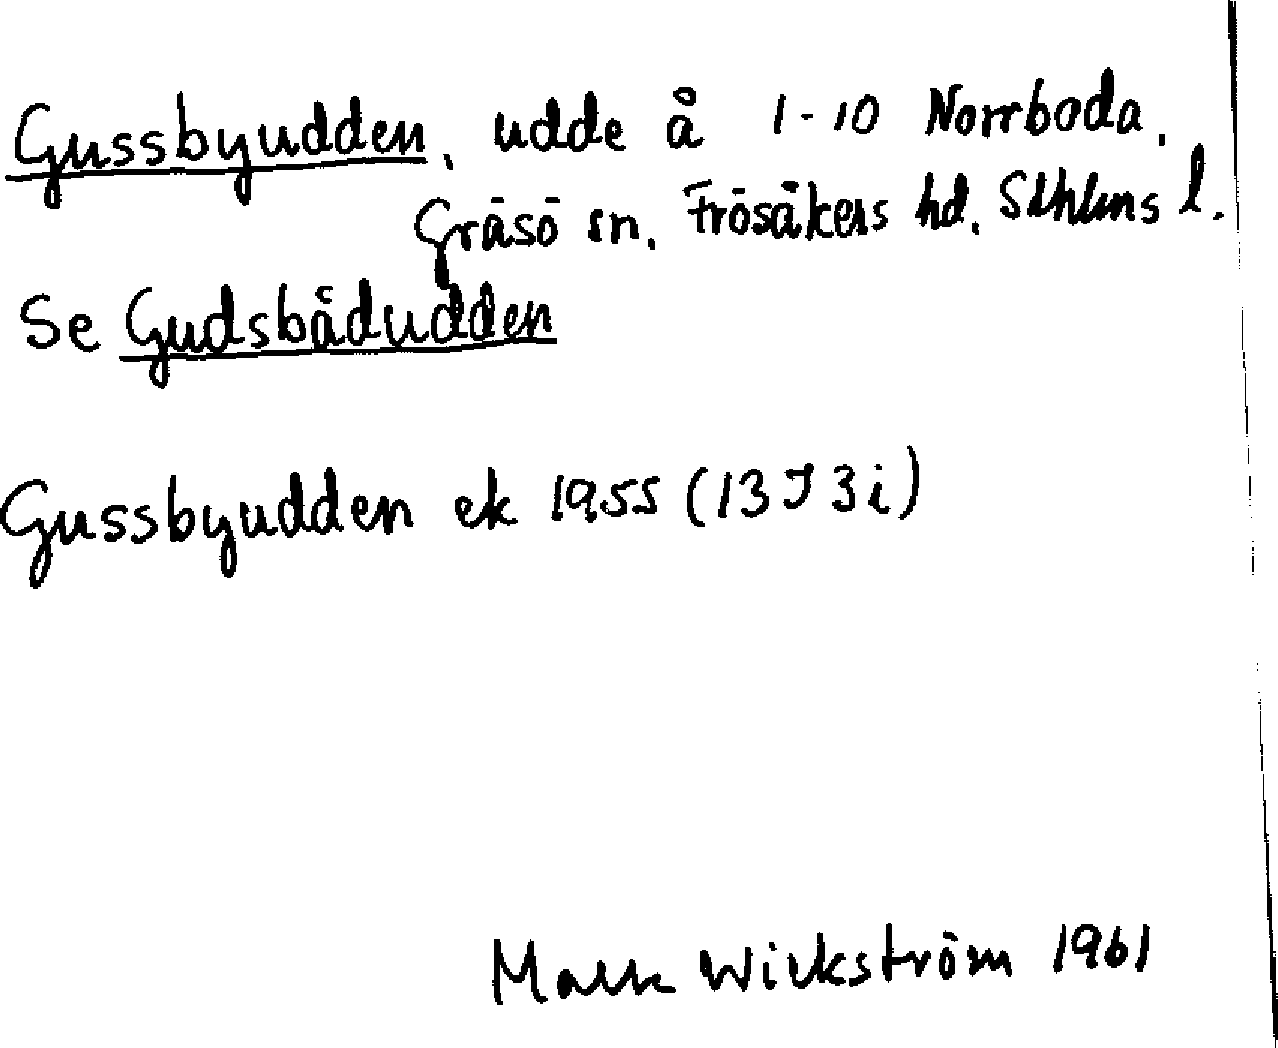 Gussbyudden, udde å 1-10 Norrboda.
Gräsö sn. Frösåkers hd. Sthlms l.
Se Gudsbådudden
Gussbyudden ek 1955 (13J3i)
Wickström 1961